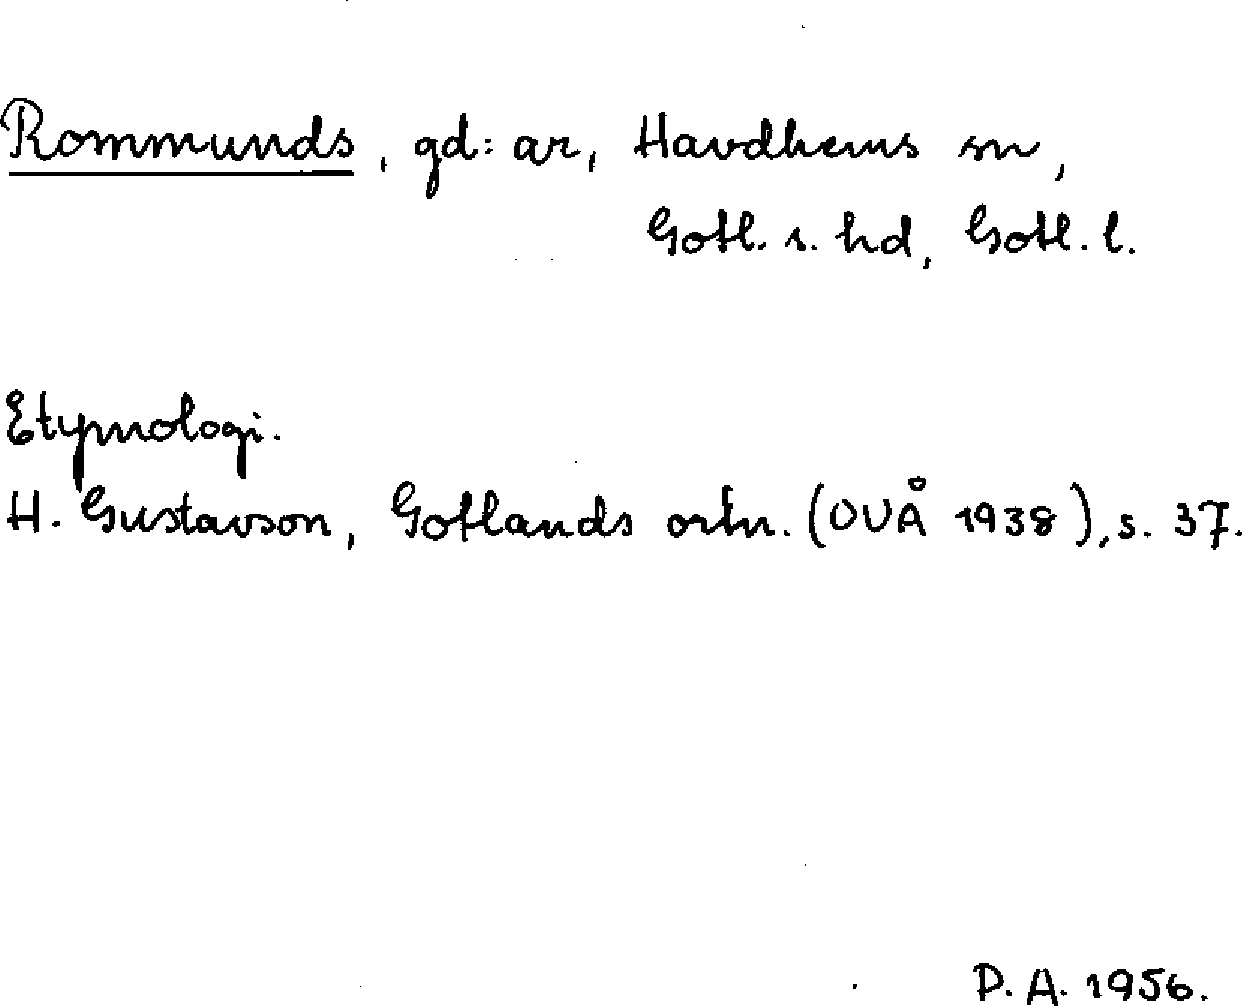 Rommunds, gd: ar, Havdhems sn,
Gotl. s. hd, Gotl. l.
Etymologi.
H. Gustavson, Gotlands ortn. (OUÅ 1938), s. 37.
P. A. 1956.